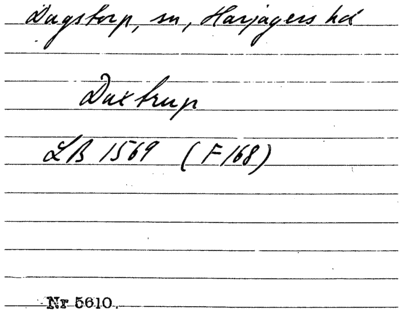 Dagstorp, sn, Harjagers hd
Daxtrup
LB 1569 (F 168)
Nr 5610.